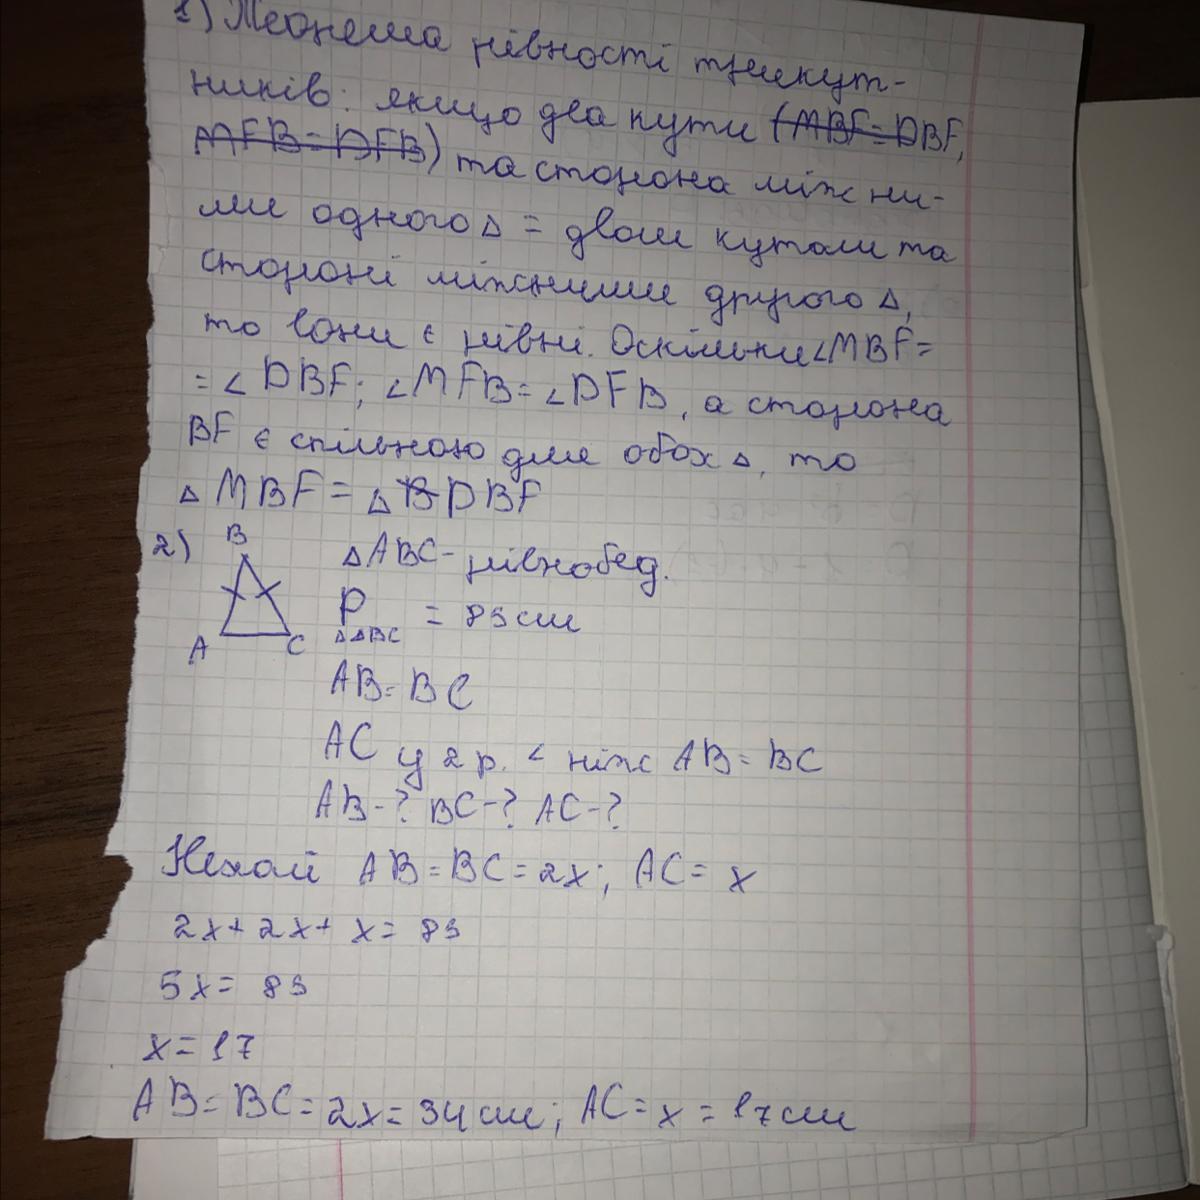 1) Теорема рівності трикут-
ників: якщо два кути (MBF=DBF,
MFB=DFB) та сторона між ни-
ми одного △ = двом кутам та
стороні між ними другого △,
то вони є рівні. Оскільки ∠MBF=
=∠DBF; ∠MFB=∠DFB, а сторона
BF є спільною для обох △, то
△MBF=△BDBF
2)
B
A
C
△ABC-рівнобед.
P△ABC = 85см
AB=BC
AC у 2 р. < ніж AB=BC
AB-? BC-? AC-?
Нехай AB=BC=2x; AC=x
2x+2x+x=85
5x=85
x=17
AB=BC=2x=34см; AC=x=17см